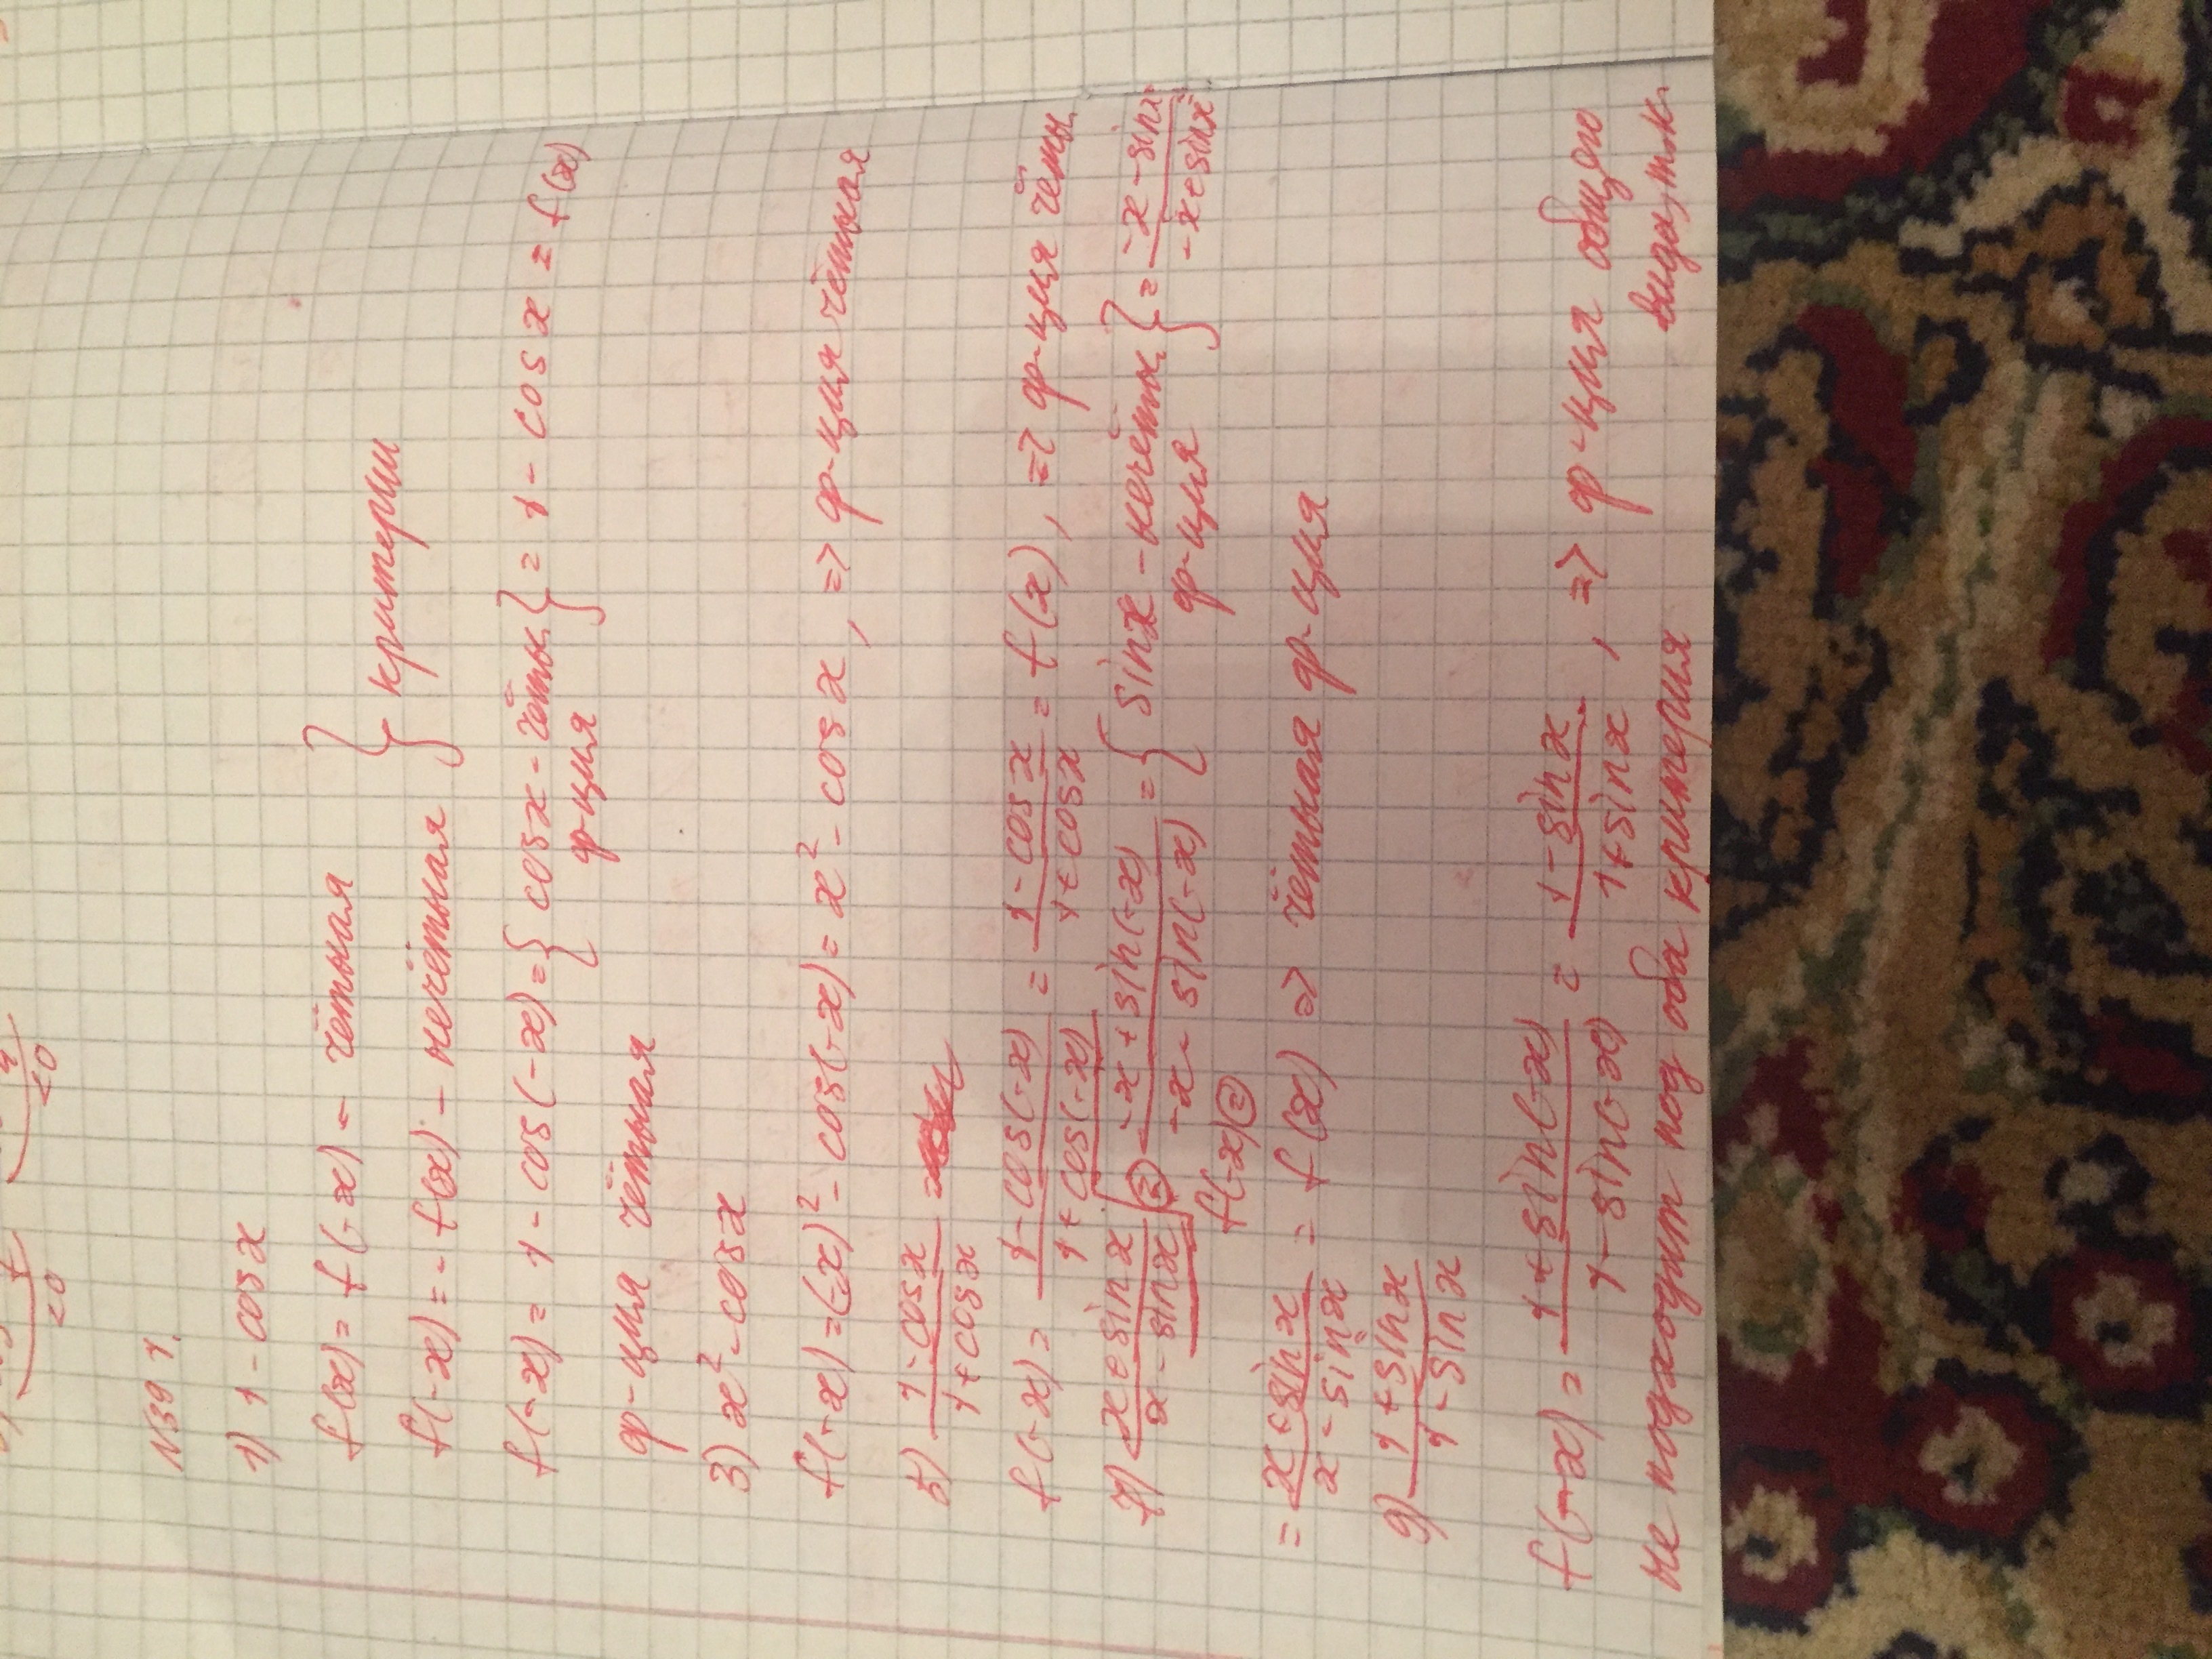 N391.
1) 1 - cos x
f(x) = f(-x) - чётная
f(-x) = - f(x) - нечётная } критерии
f(-x) = 1 - cos(-x) = { cos x - чётн. ф-ция } = 1 - cos x = f(x)
ф-ция чётная
3) x² - cos x
f(-x) = (-x)² - cos(-x) = x² - cos x, => ф-ция чётная
5) (1 - cos x)/(1 + cos x)
f(-x) = (1 - cos(-x))/(1 + cos(-x)) = (1 - cos x)/(1 + cos x) = f(x), => ф-ция чётн.
7) (x + sin x)/(x - sin x) f(-x) = (-x + sin(-x))/(-x - sin(-x)) = { sin x - нечётн. ф-ция } = (-x - sin x)/(-x + sin x)
= (x + sin x)/(x - sin x) = f(x) => чётная ф-ция
9) (1 + sin x)/(1 - sin x)
f(-x) = (1 + sin(-x))/(1 - sin(-x)) = (1 - sin x)/(1 + sin x), => ф-ция общего
вида, т.к.
не подходит под оба критерия